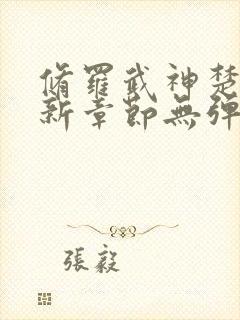 脩羅武神楚
新章節無彈
張毅